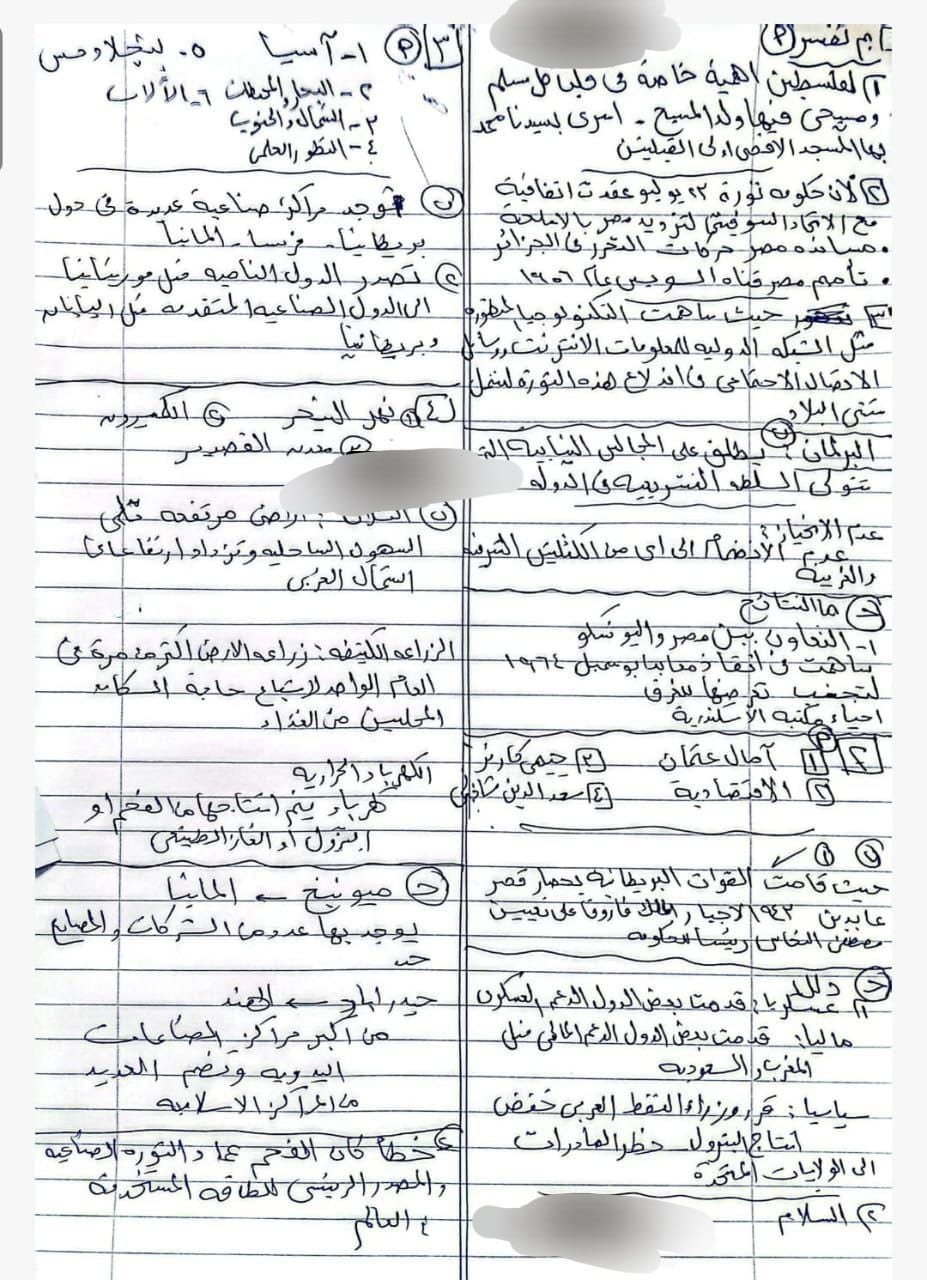 ١) م تفسر (P)
١) لفلسطين أهمية خاصة فى قلب كل مسلم
ومسيحى فيها ولد المسيح - اسرى بسيدنا محمد
بها المسجد الاقصى اولى القبلتين
٢ لأن حكومه ثورة ٢٣ يوليو عقدت اتفاقية
مع الاتحاد السوفيتى لتزويد مصر بالاسلحة
• مسانده مصر حركات التحرر فى الجزائر
• تأميم مصر قناه السويس عام ١٩٥٦
٣ حيث ساهمت التكنولوجيا المتطوره
مثل الشبكه الدوليه للمعلومات الانترنت ورسائل
الاتصال الاجتماعى فى اندلاع هذه الثورة لتشمل
شتى البلاد
ب
البرلمان : يطلق على المجالس النيابية التى
تتولى السلطه التشريعيه فى الدوله
عدم الانحياز :
عدم الانضمام الى اى من الكتلتين الشرقيه
والغربية
ج ما النتائج
١- التعاون بين مصر واليونسكو
ساهمت فى انقاذ معابد ابو سمبل ١٩٦٤
لتجنب تعرضها للغرق
احياء مكتبه الاسكندرية
٢ P ١ آمال عثمان ٣ جيمى كارتر
٢ الاقتصادية ٤ سعد الدين شاذلى
ب ١ ✓
حيث قامت القوات البريطانيه بحصار قصر
عابدين ٩٤٢ لاجبار الملك فاروق على تعيين
مصطفى النحاس رئيسا للحكومه
ج دلل
١ عسكريا : قدمت بعض الدول الدعم العسكرى
ماليا : قدمت بعض الدول الدعم المالى مثل
المغرب والسعوديه
سياسيا : قرر وزراء النفط العربى خفض
انتاج البترول حظر الصادرات
الى الولايات المتحدة
٢ السلام
٣ P ١- آسيا ٥- بنجلادش
٢- البحار والمحيطات ٦- الألاب
٣- الشمال والجنوب
٤- التطور العلمى
ب توجد مراكز صناعية عديدة فى دول
بريطانيا - فرنسا - المانيا
٢ تصدر الدول الناميه مثل موريتانيا
الى الدول الصناعيه المتقدمه مثل اليابان
وبريطانيا
٤ ١ نهر النيجر ٢ الكميرون
٣ معدن القصدير
ب التلال : اراضى مرتفعه تلى
السهول الساحليه وتزداد ارتفاعا فى
الشمال الغربى
الزراعه الكثيفه : زراعه الارض اكثر من مرة فى
العام الواحد لاشباع حاجة السكان
المحليين من الغذاء
الكهرباء الحراريه
كهرباء يتم انتاجها من الفحم او
البترول او الغاز الطبيعى
ج ميونيخ ← المانيا
يوجد بها عدد من الشركات والمصانع
حيدر اباد ← الهند
من اكبر مراكز الصناعات
اليدويه وتضم العديد
من المراكز الاسلاميه
٤ خطأ كان الفحم عماد الثوره الصناعيه
والمصدر الرئيسى للطاقه المستخدمة
فى العالم